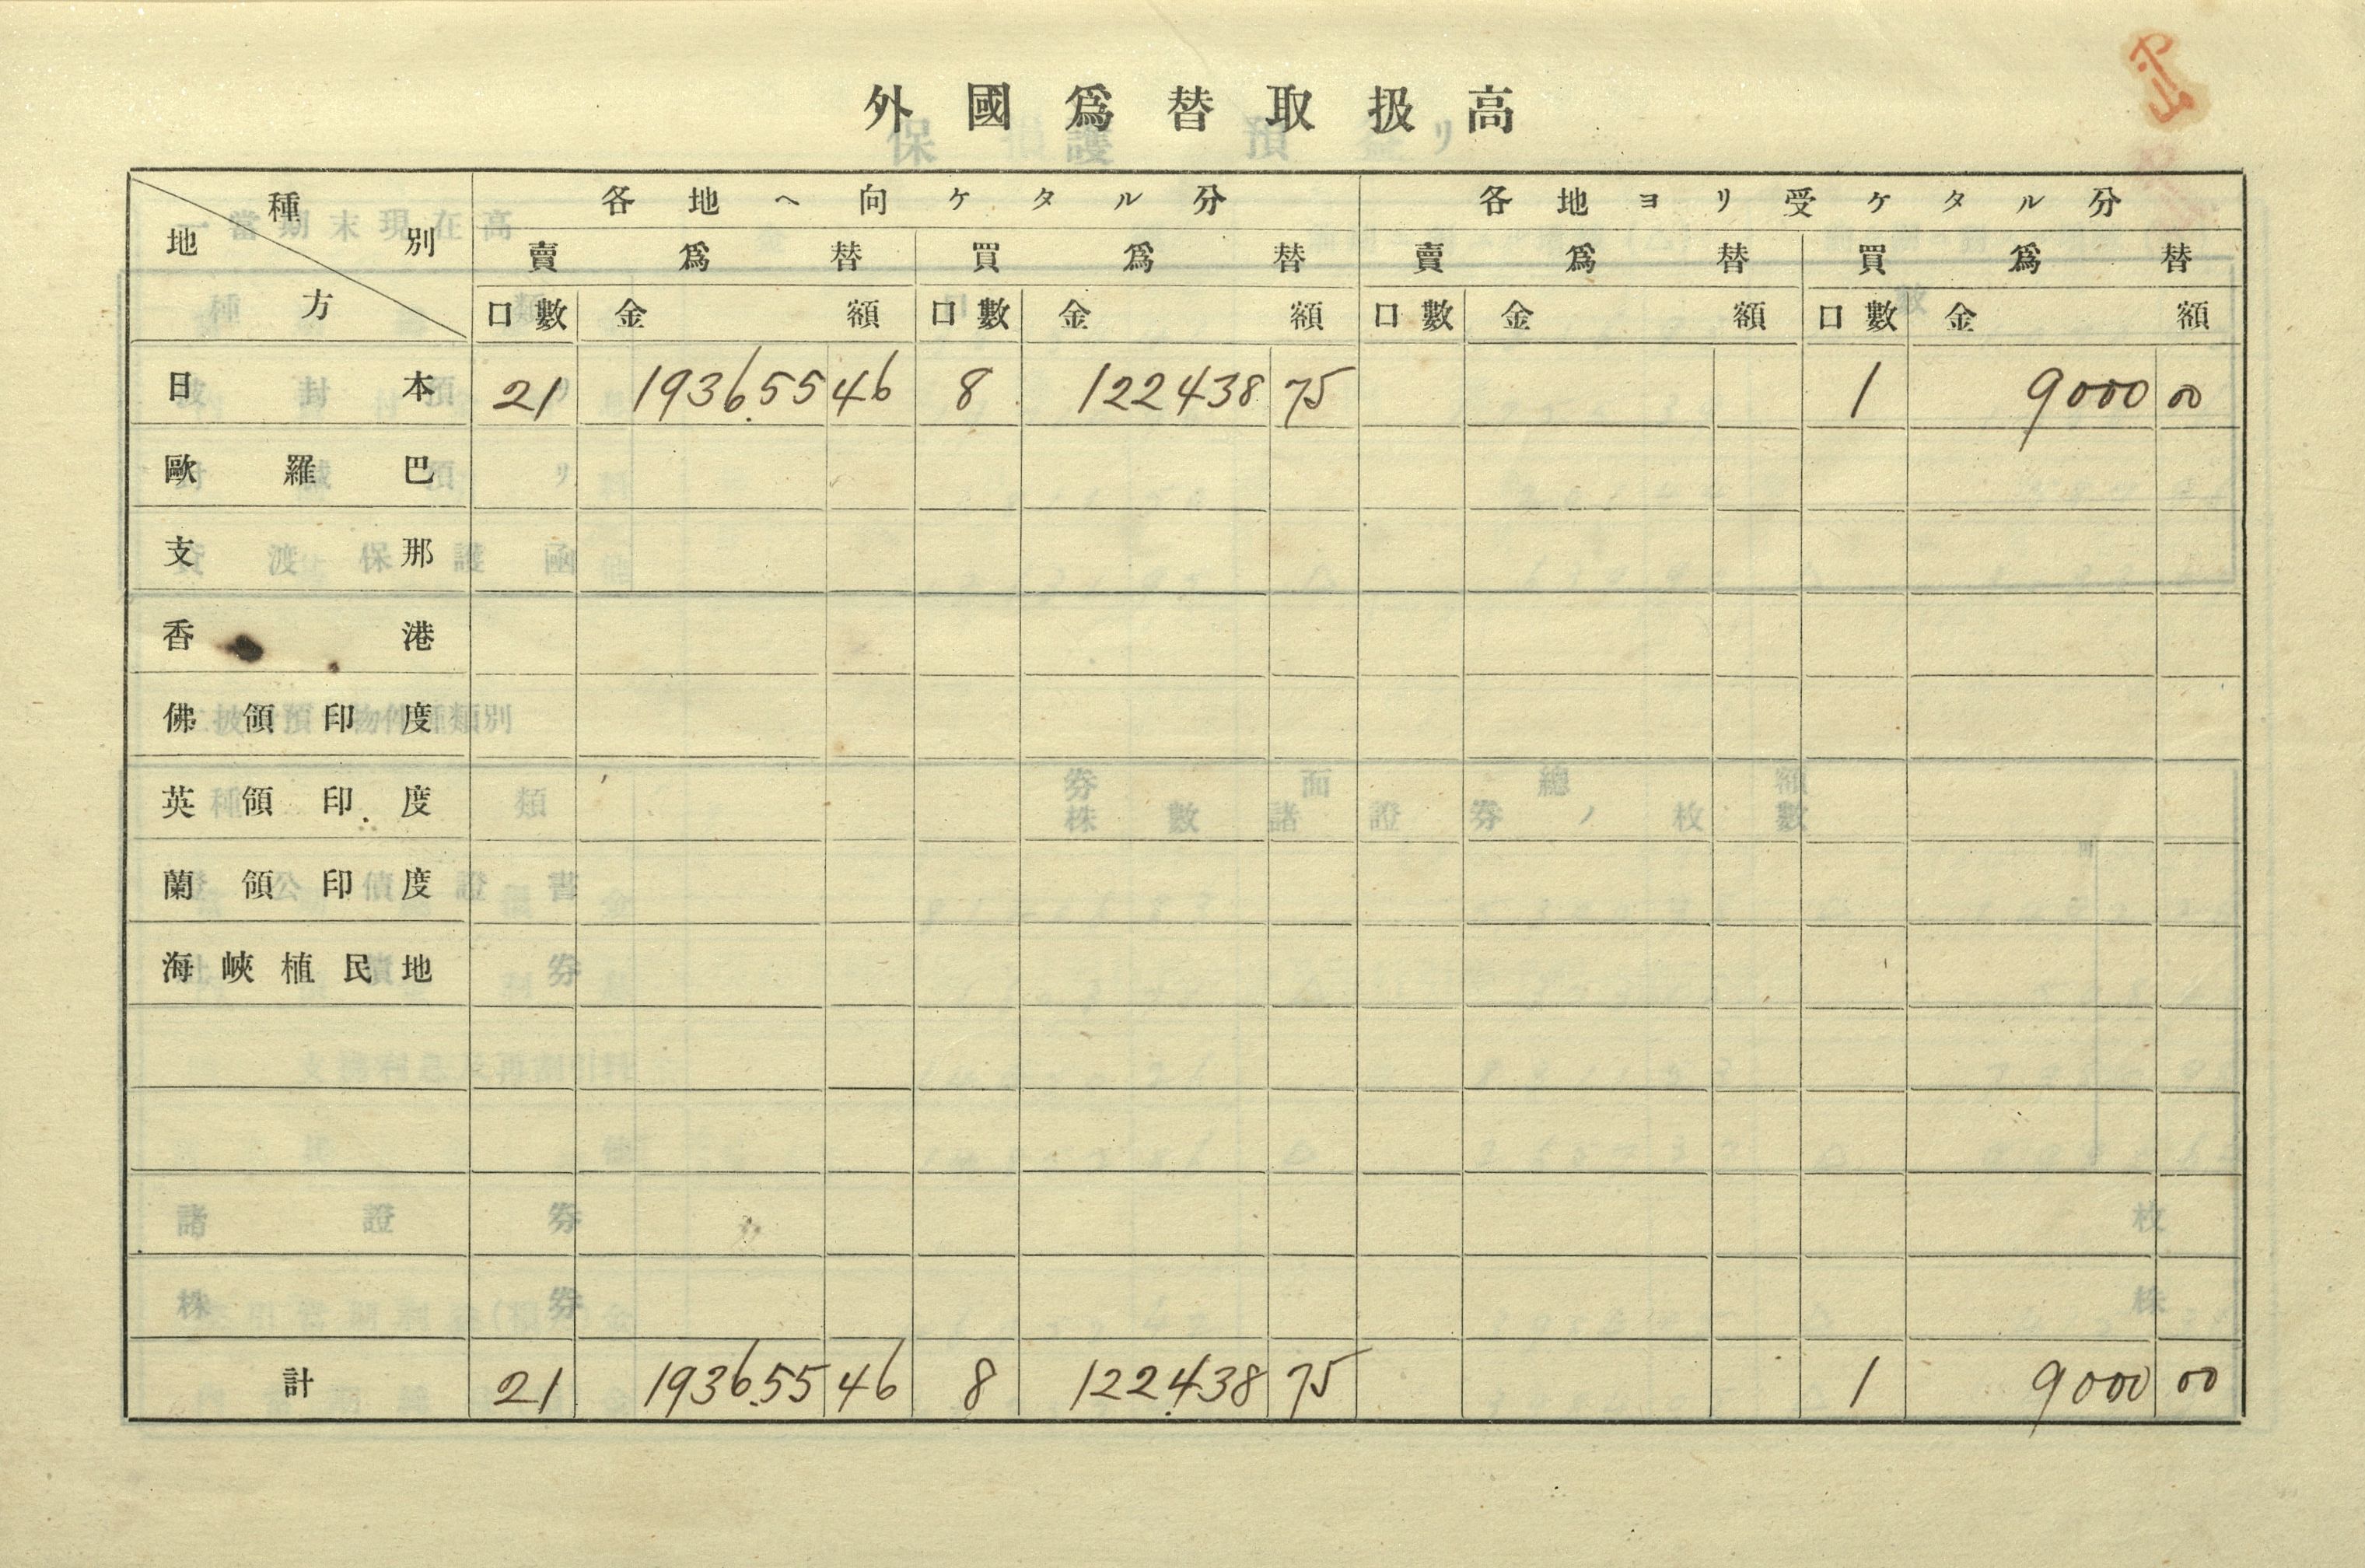 外國爲替取扱高
種別 地方 各地ヘ向ケタル分 各地ヨリ受ケタル分
賣爲替 買爲替 賣爲替 買爲替
口數 金額 口數 金額 口數 金額 口數 金額
日本 21 193655 46 8 122438 75 1 9000 00
歐羅巴
支那
香港
佛領印度
英領印度
蘭領印度
海峽植民地
計 21 193655 46 8 122438 75 1 9000 00